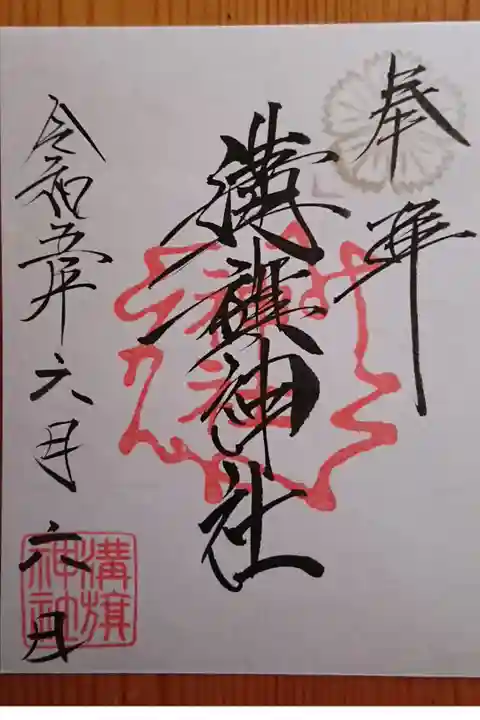 奉拝
溝旗神社
神社
令和五年六月六日
溝旗
神社